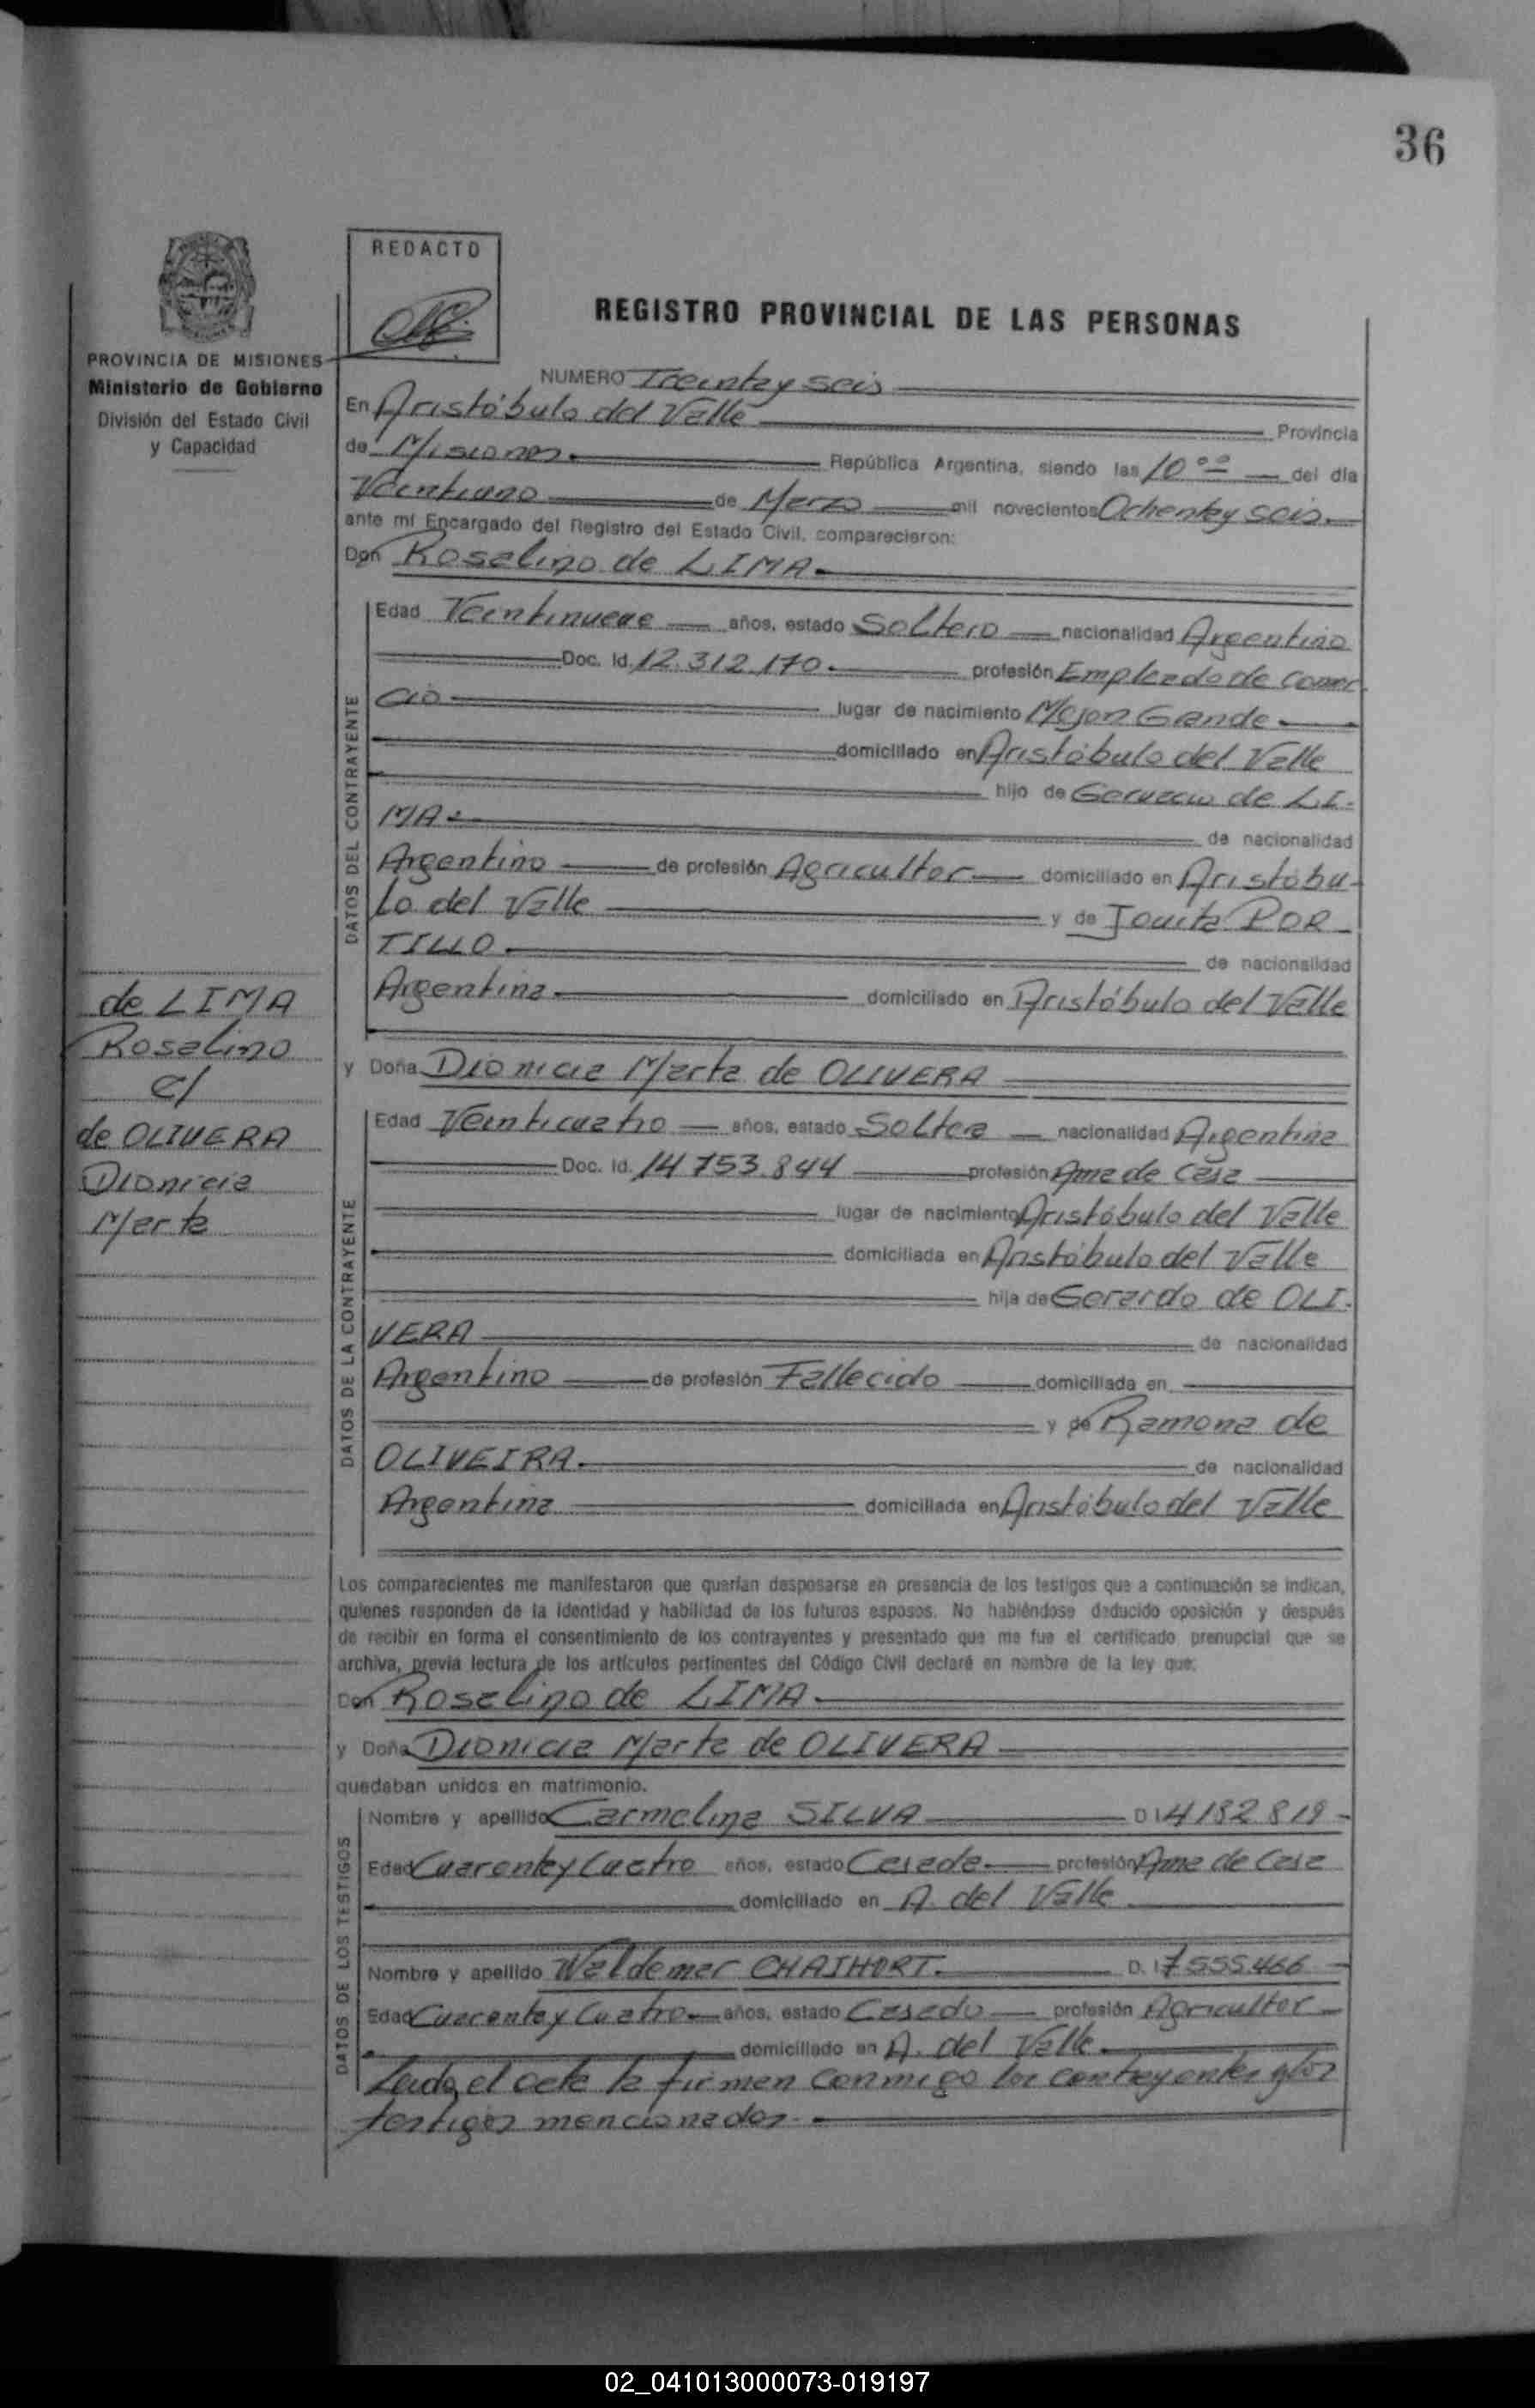 36
REDACTO
REGISTRO PROVINCIAL DE LAS PERSONAS
PROVINCIA DE MISIONES
Ministerio de Gobierno
División del Estado Civil
y Capacidad
NUMERO Treinta y seis
En Aristóbulo del Valle Provincia
de Misiones República Argentina, siendo las 10 00 del día
Veintiuno de Marzo mil novecientos Ochenta y seis
ante mí Encargado del Registro del Estado Civil, comparecieron:
Don Roselino de LIMA
DATOS DEL CONTRAYENTE
Edad Veintinueve años, estado Soltero nacionalidad Argentino
Doc. Id. 12.312.170 profesión Empleado de comer
cio lugar de nacimiento Mojon Grande
domiciliado en Aristóbulo del Valle
hijo de de LI-
MA de nacionalidad
Argentino de profesión Agricultor domiciliado en Aristóbu-
lo del Valle y de Jovita POR
TILLO de nacionalidad
Argentina domiciliado en Aristóbulo del Valle
de LIMA
Roselino
c/
de OLIVERA
Dionicia
Marta
y Doña Dionicia Marta de OLIVERA
DATOS DE LA CONTRAYENTE
Edad Veinticuatro años, estado Soltera nacionalidad Argentina
Doc. Id. 14.753.844 profesión Ama de Casa
lugar de nacimiento Aristóbulo del Valle
domiciliada en Aristóbulo del Valle
hija de Gerardo de OLI-
VERA de nacionalidad
Argentino de profesión Fallecido domiciliada en
y de Ramona de
OLIVEIRA de nacionalidad
Argentina domiciliada en Aristóbulo del Valle
Los comparecientes me manifestaron que querían desposarse en presencia de los testigos que a continuación se indican,
quienes responden de la identidad y habilidad de los futuros esposos. No habiéndose deducido oposición y después
de recibir en forma el consentimiento de los contrayentes y presentado que me fue el certificado prenupcial que se
archiva, previa lectura de los artículos pertinentes del Código Civil declaré en nombre de la ley que:
Don Roselino de LIMA
y Doña Dionicia Marta de OLIVERA
quedaban unidos en matrimonio.
DATOS DE LOS TESTIGOS
Nombre y apellido Carmelina SILVA D I 4.182.819
Edad Cuarenta y Cuatro años, estado Casada profesión Ama de Casa
domiciliado en A. del Valle
Nombre y apellido Waldemar D. I 7.555.466
Edad Cuarenta y Cuatro años, estado Casado profesión Agricultor
domiciliado en A. del Valle
Leida el acta la firman conmigo los contrayentes y los
testigos mencionados.
02_041013000073-019197